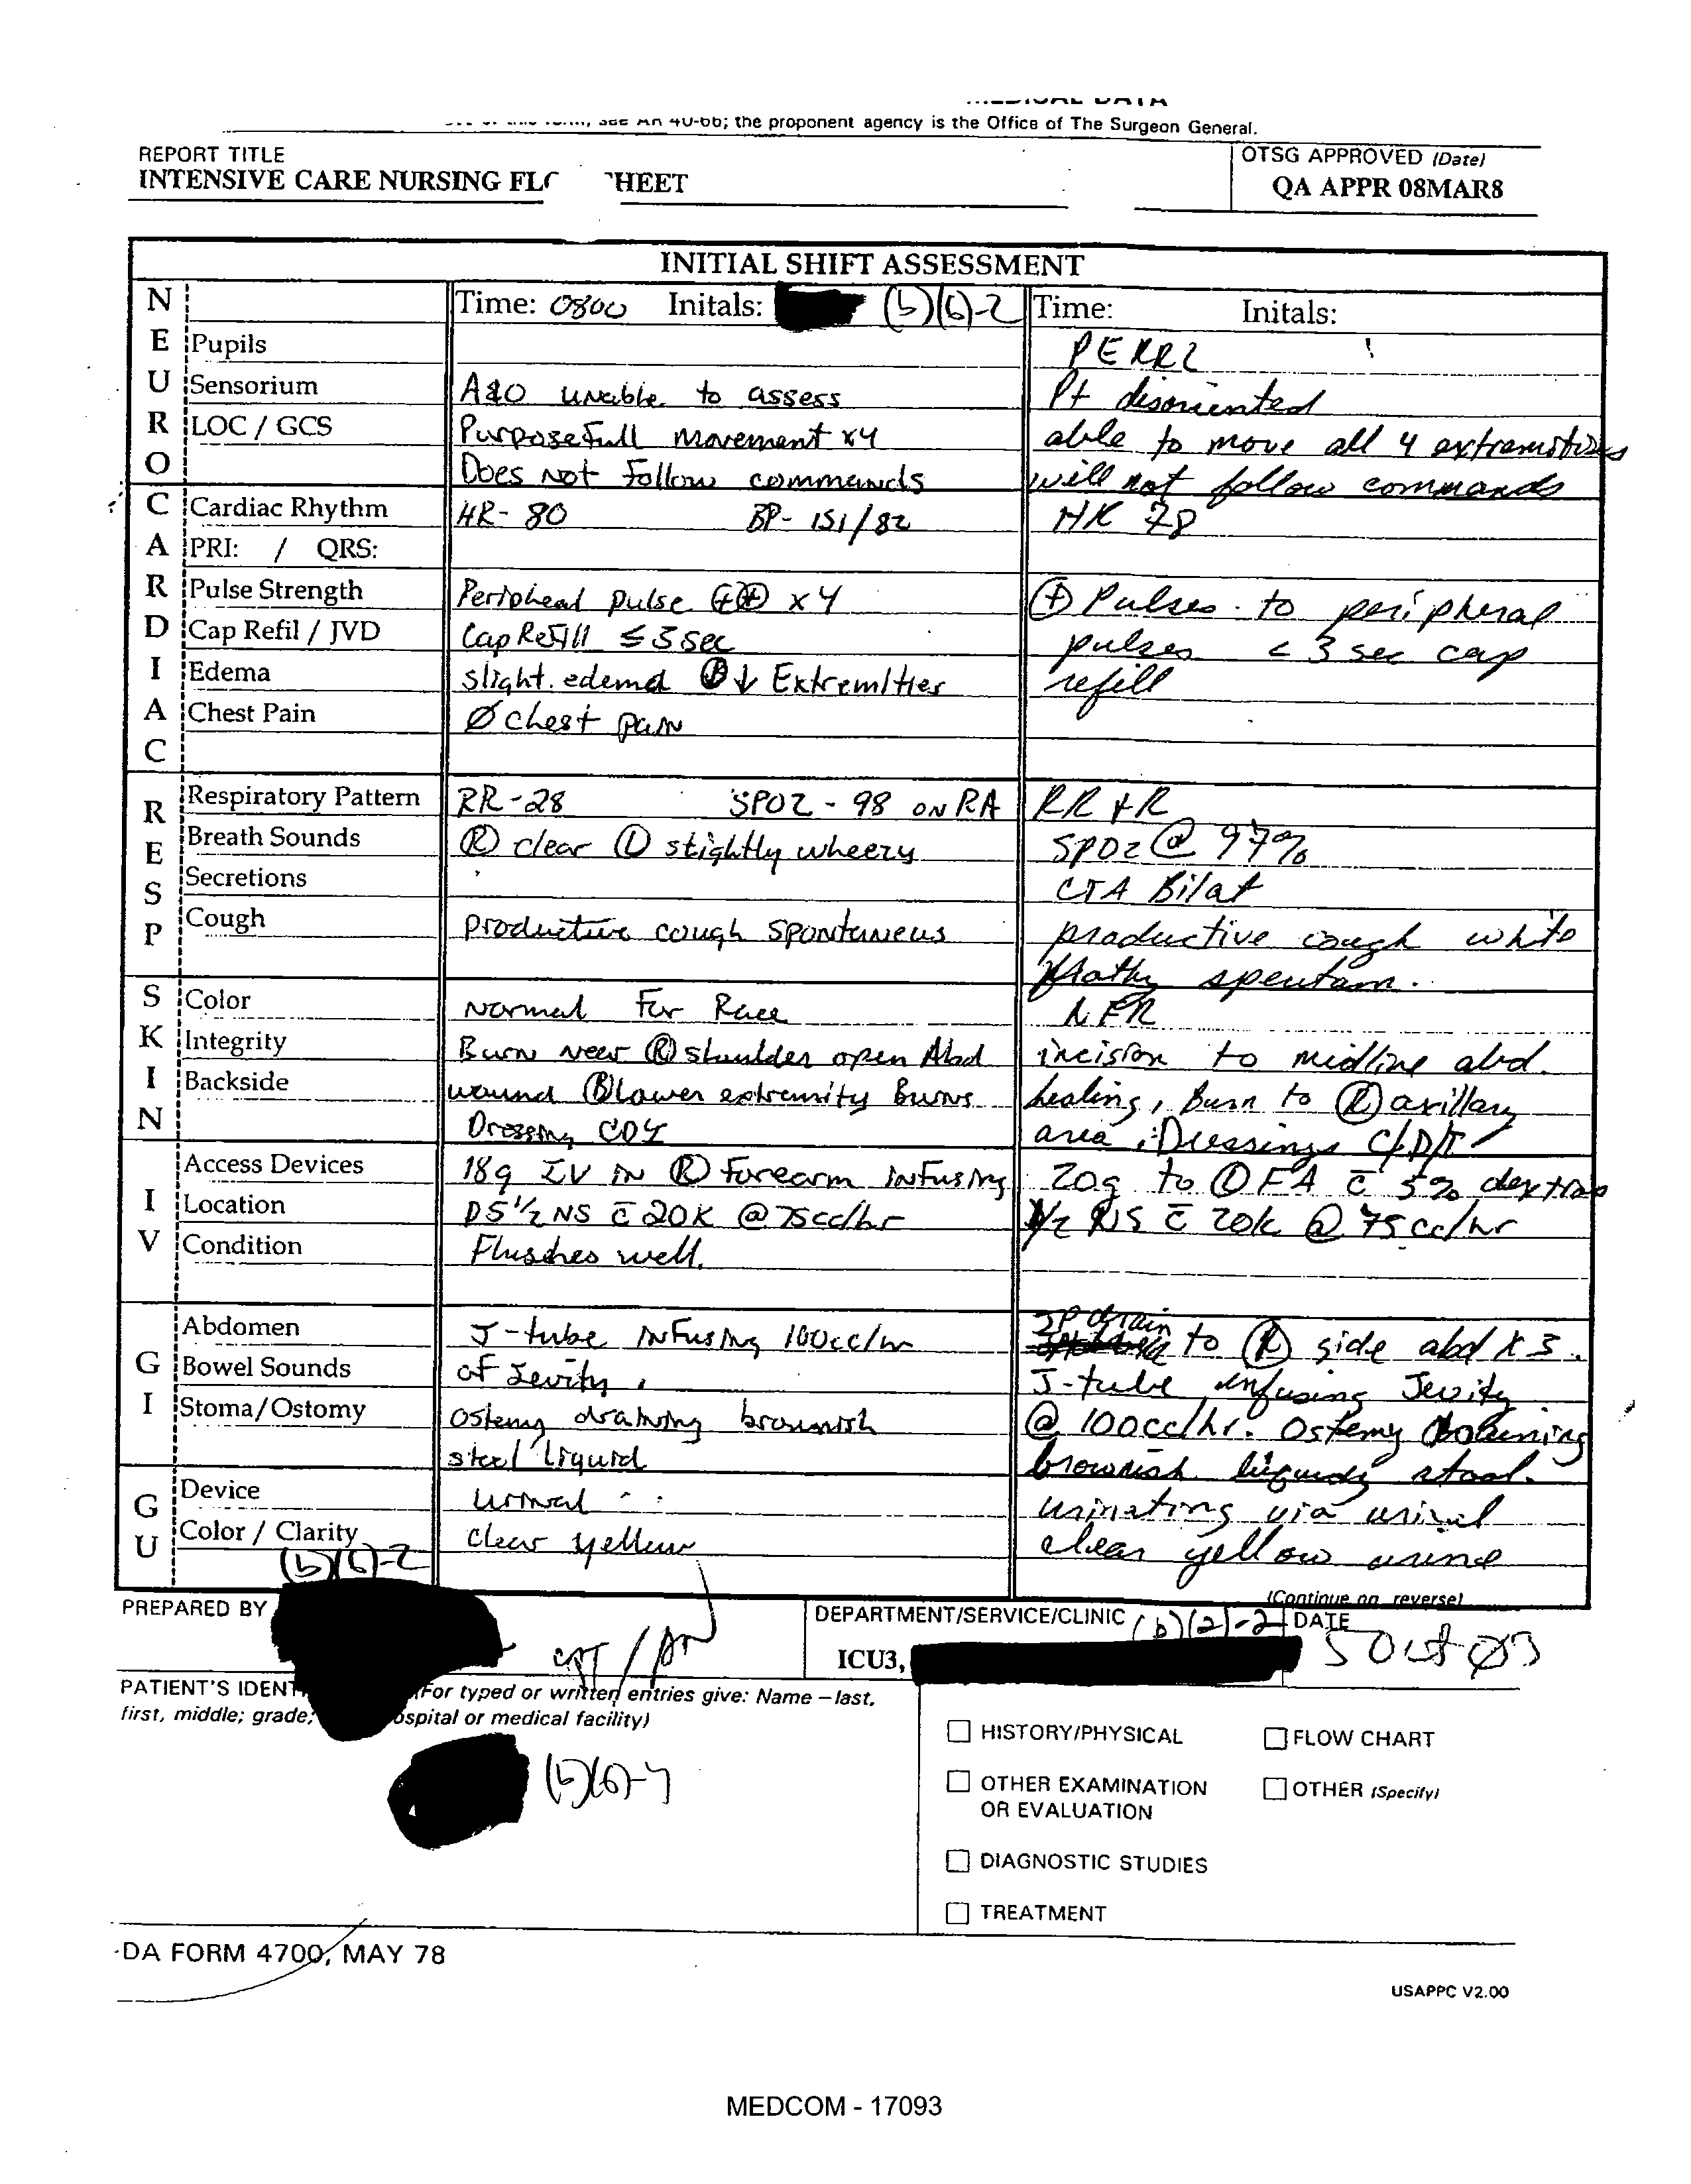 MEDICAL DATA
see AR 40-66; the proponent agency is the Office of The Surgeon General.
REPORT TITLE
INTENSIVE CARE NURSING FL HEET
OTSG APPROVED (Date)
QA APPR 08MAR8
INITIAL SHIFT ASSESSMENT
NEURO
Time: 0800 Initals: (b)(6)-2
Time: Initals:
Pupils
PERRL
Sensorium
A&O unable to assess
Pt disoriented
LOC / GCS
Purposefull movement x4
able to move all 4 extremities
Does Not Follow commands
will not follow commands
CARDIAC
Cardiac Rhythm
HR- 80 BP- 151/82
HR 78
PRI: / QRS:
Pulse Strength
Peripheal pulse ⊕⊕ x4
⊕ Pulses to peripheral
Cap Refil / JVD
Cap Refill ≤ 3 sec
pulses < 3 sec cap
Edema
slight edema Ⓑ↓ Extremities
refill
Chest Pain
Ø chest pain
RESP
Respiratory Pattern
RR-28 SPO2 - 98 on RA
RR + R
Breath Sounds
Ⓡ clear Ⓛ slightly wheezy
SPO2 @ 97%
Secretions
CTA Bilat
Cough
productive cough spontaneus
productive cough white
frothy speutam.
SKIN
Color
Normal For Race
NFR
Integrity
Burn near Ⓡ shoulder open Abd
incision to midline abd.
Backside
wound Ⓑ lower extremity Burns
healing, Burn to Ⓡ axillary
Dressing CDI
area, Dressings C/D/I
IV
Access Devices
18g IV in Ⓡ Forearm infusing
20g to Ⓛ FA c̄ 5% dextros
Location
D5 1/2 NS c̄ 20K @ 75cc/hr
1/2 NS c̄ 20k @ 75cc/hr
Condition
Flushes well.
GI
Abdomen
J-tube infusing 100cc/hr
JP drain to Ⓡ side abd x 3.
Bowel Sounds
of Jevity.
J-tube infusing Jevity
Stoma/Ostomy
ostemy draining brownish
@ 100cc/hr. Ostemy draining
stool liquid
brownish liquidy stool.
GU
Device
urinal
urinating via urinal
Color / Clarity
clear yellow
clear yellow urine
(b)(6)-2
(Continue on reverse)
PREPARED BY
CPT / AN
DEPARTMENT/SERVICE/CLINIC (b)(2)-2
ICU3,
DATE
5 Oct 03
PATIENT'S IDENT (For typed or written entries give: Name – last,
first, middle; grade; ospital or medical facility)
(b)(6)-4
☐ HISTORY/PHYSICAL ☐ FLOW CHART
☐ OTHER EXAMINATION OR EVALUATION ☐ OTHER (Specify)
☐ DIAGNOSTIC STUDIES
☐ TREATMENT
DA FORM 4700, MAY 78
USAPPC V2.00
MEDCOM - 17093